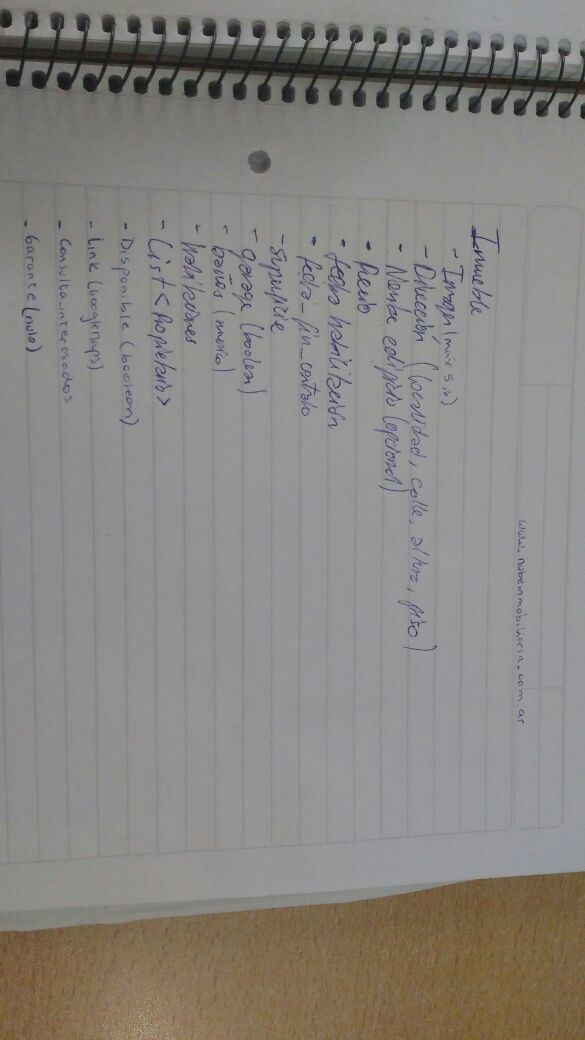 www.nubeinmobiliaria.com.ar
Inmueble
- Imagen (máx 5,6)
- Dirección (localidad, calle, altura, piso)
- Nombre edificio (opcional)
- Precio
- fecha habilitación
- fecha_fin_contrato
- superficie
- garage (boolean)
- baños (numerico)
- habitaciones
- List <Propietario>
- Disponible (boolean)
- Link (GoogleMaps)
- Consulta_interesados
- Garante (nulo)